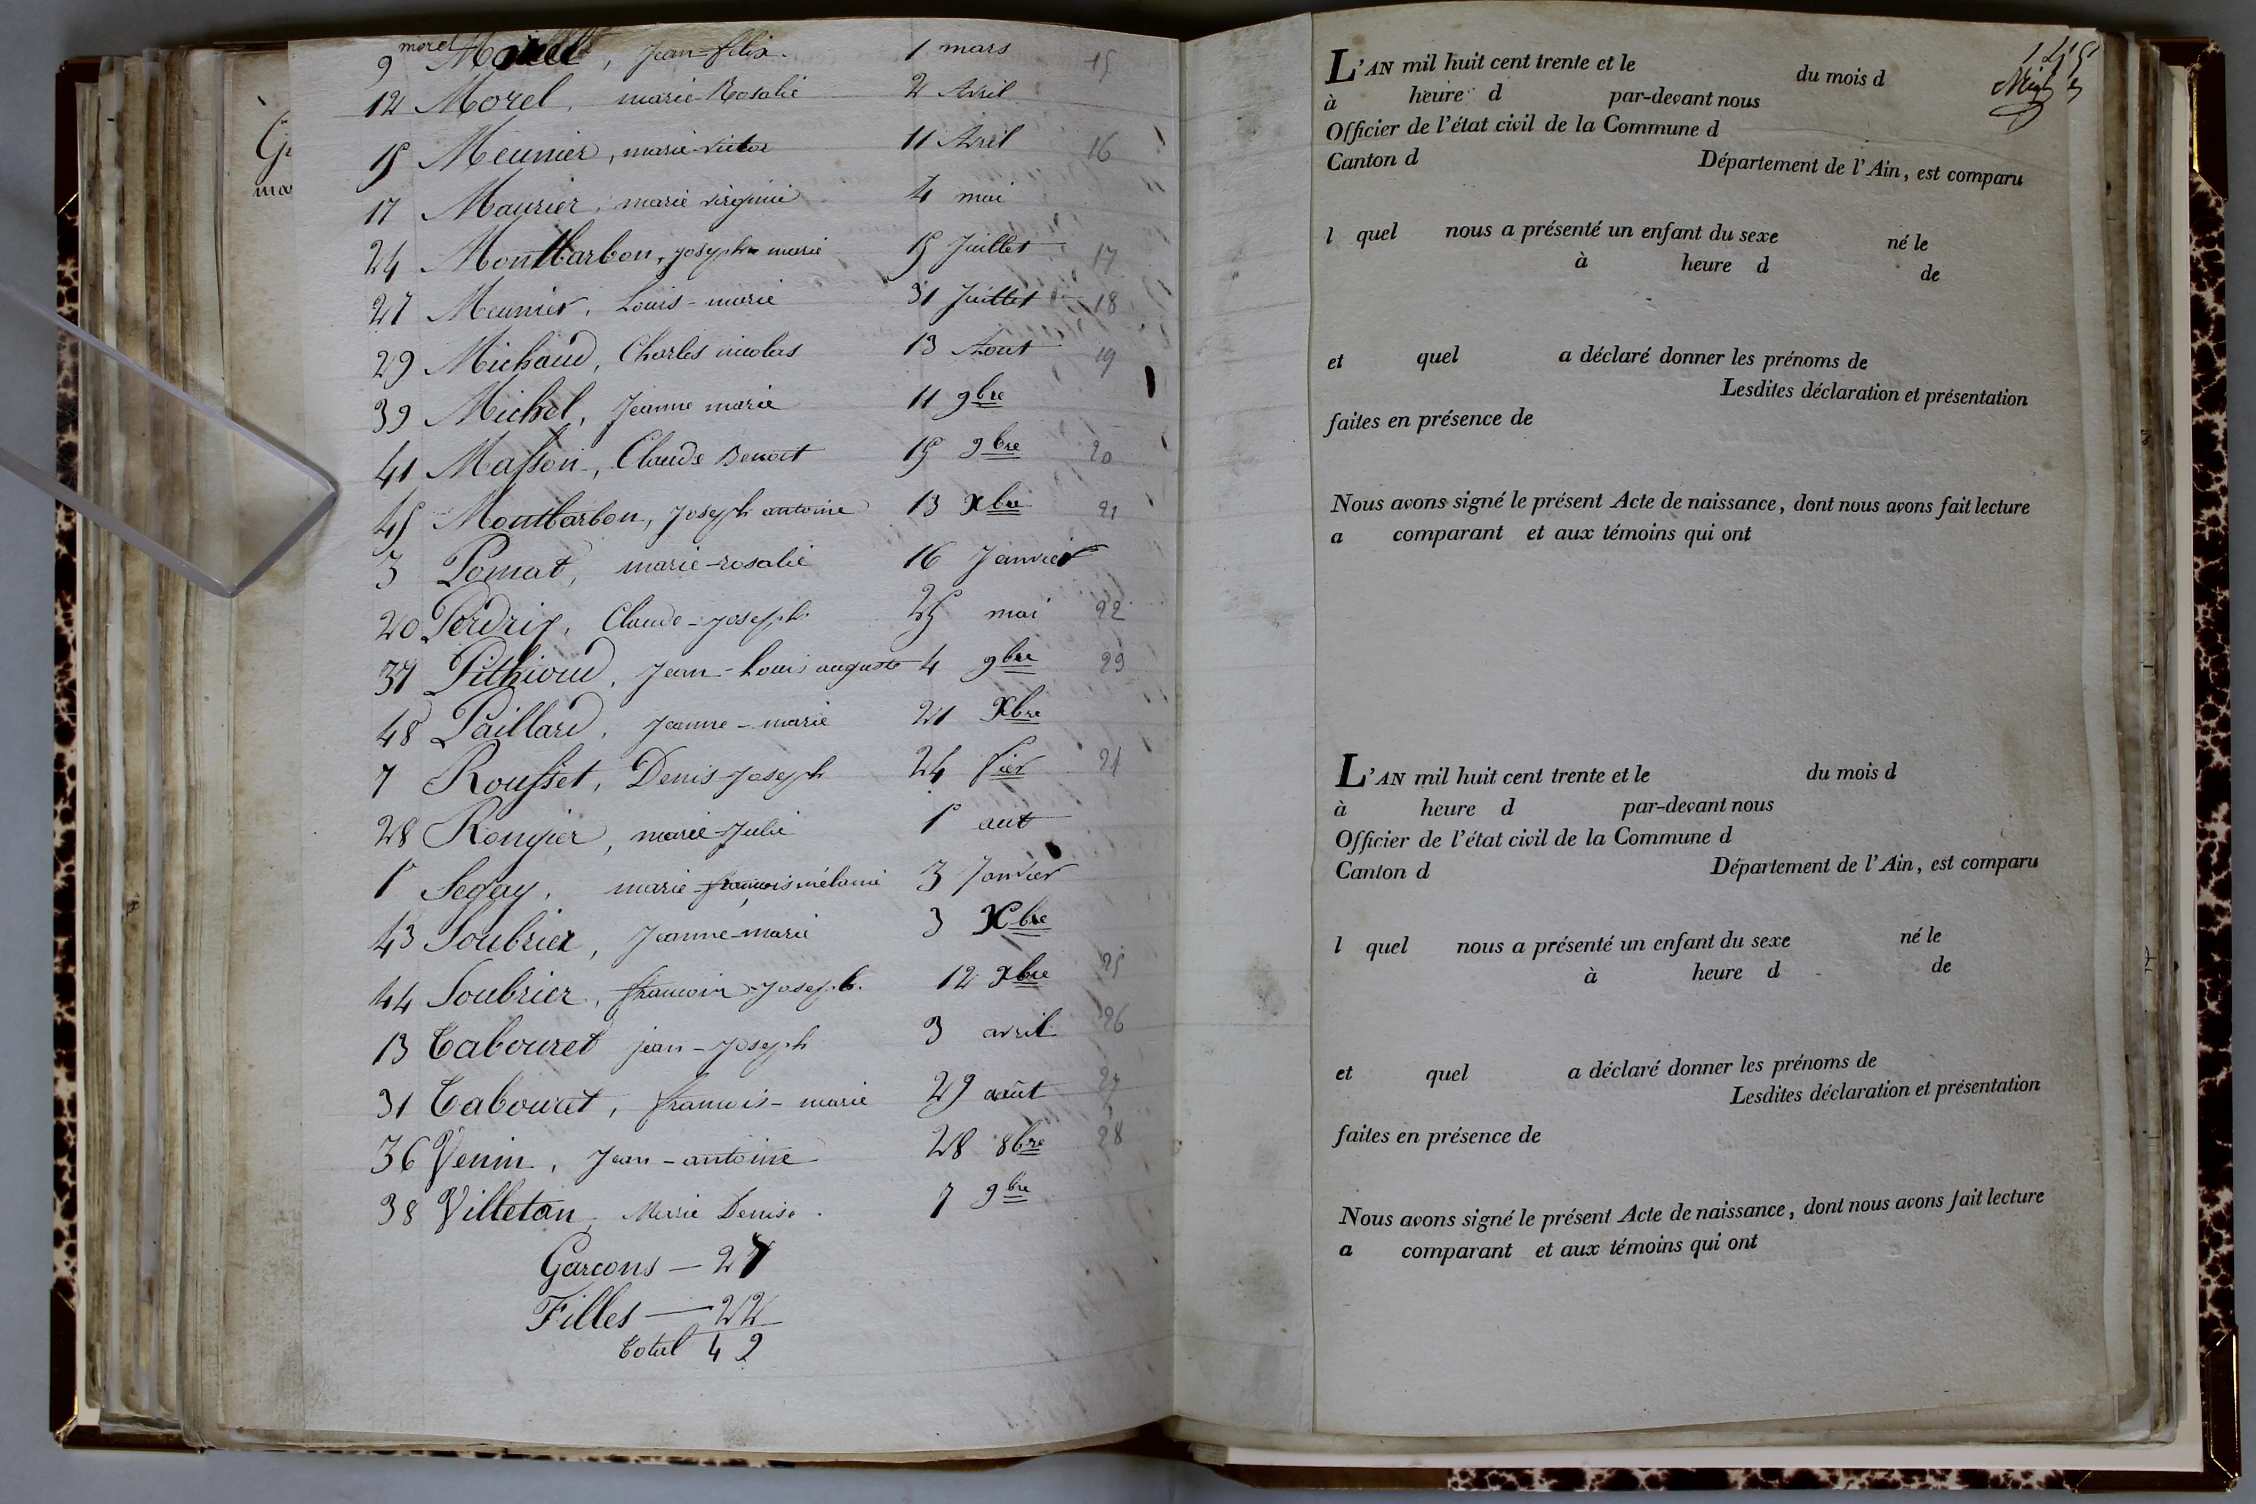 9 morel, Jean-félix. 1 mars 15
12 Morel, marie-Rosalie 2 Avril
15 Meunier, marie-victor 11 Avril 16
17 Maurier, marie virginie 4 mai
24 Montbarbon, joseph marie 15 Juillet 17
27 Meunier, Louis-marie 31 Juillet 18
29 Michaud, Charles nicolas 13 Aout 19
39 Michel, Jeanne marie 11 9bre
41 Masson, Claude Benoit 15 9bre 20
45 Montbarbon, joseph antoine 13 Xbre 21
3 Pomat, marie-rosalie 16 Janvier
20 Perdrix, Claude-joseph 25 mai 22
37 Pithioud, jean-Louis auguste 4 9bre 23
48 Paillard, jeanne-marie 21 Xbre
7 Rousset, Denis-joseph 24 fier 24
28 Rongier, marie-Julie 1r aut
1r Segay, marie-françois mélanie 3 Janvier
43 Soubrier, jeanne-marie 3 Xbre
44 Soubrier, françois-joseph. 12 Xbre 25
13 Tabouret jean-joseph 3 avril 26
31 Tabouret, françois-marie 29 août 27
36 Venin, jean-antoine 28 8bre 28
38 Villeton, Marie Denise. 7 9bre
Garcons — 27
Filles — 22
Total 49
145
L'AN mil huit cent trente et le du mois d
à heure d par-devant nous
Officier de l'état civil de la Commune d
Canton d Département de l'Ain, est comparu
l quel nous a présenté un enfant du sexe né le
à heure d de
et quel a déclaré donner les prénoms de
Lesdites déclaration et présentation
faites en présence de
Nous avons signé le présent Acte de naissance, dont nous avons fait lecture
a comparant et aux témoins qui ont
L'AN mil huit cent trente et le du mois d
à heure d par-devant nous
Officier de l'état civil de la Commune d
Canton d Département de l'Ain, est comparu
l quel nous a présenté un enfant du sexe né le
à heure d de
et quel a déclaré donner les prénoms de
Lesdites déclaration et présentation
faites en présence de
Nous avons signé le présent Acte de naissance, dont nous avons fait lecture
a comparant et aux témoins qui ont